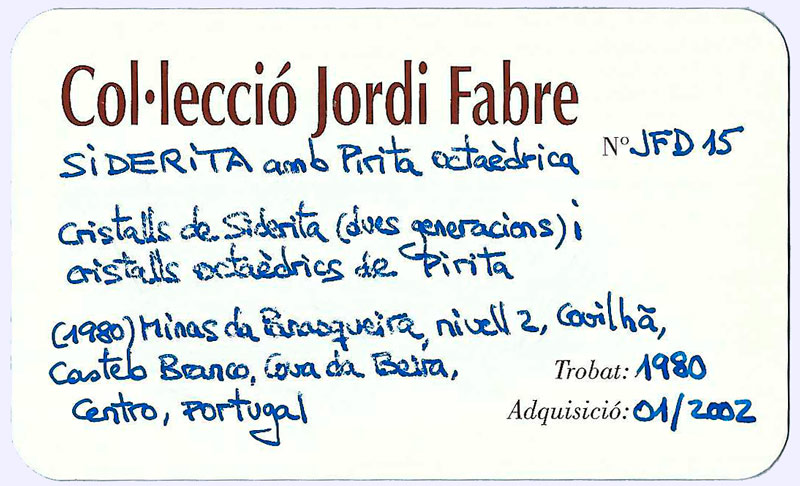 Col·lecció Jordi Fabre
SiDERiTA amb Pirita octaèdrica Nº JFD 15
Cristalls de Siderita (dues generacions) i
cristalls octaèdrics de Pirita
(1980) Minas da Panasqueira, nivell 2, Covilhã,
Castelo Branco, Cova da Beira,
Trobat: 1980
Centro, Portugal
Adquisició: 01/2002